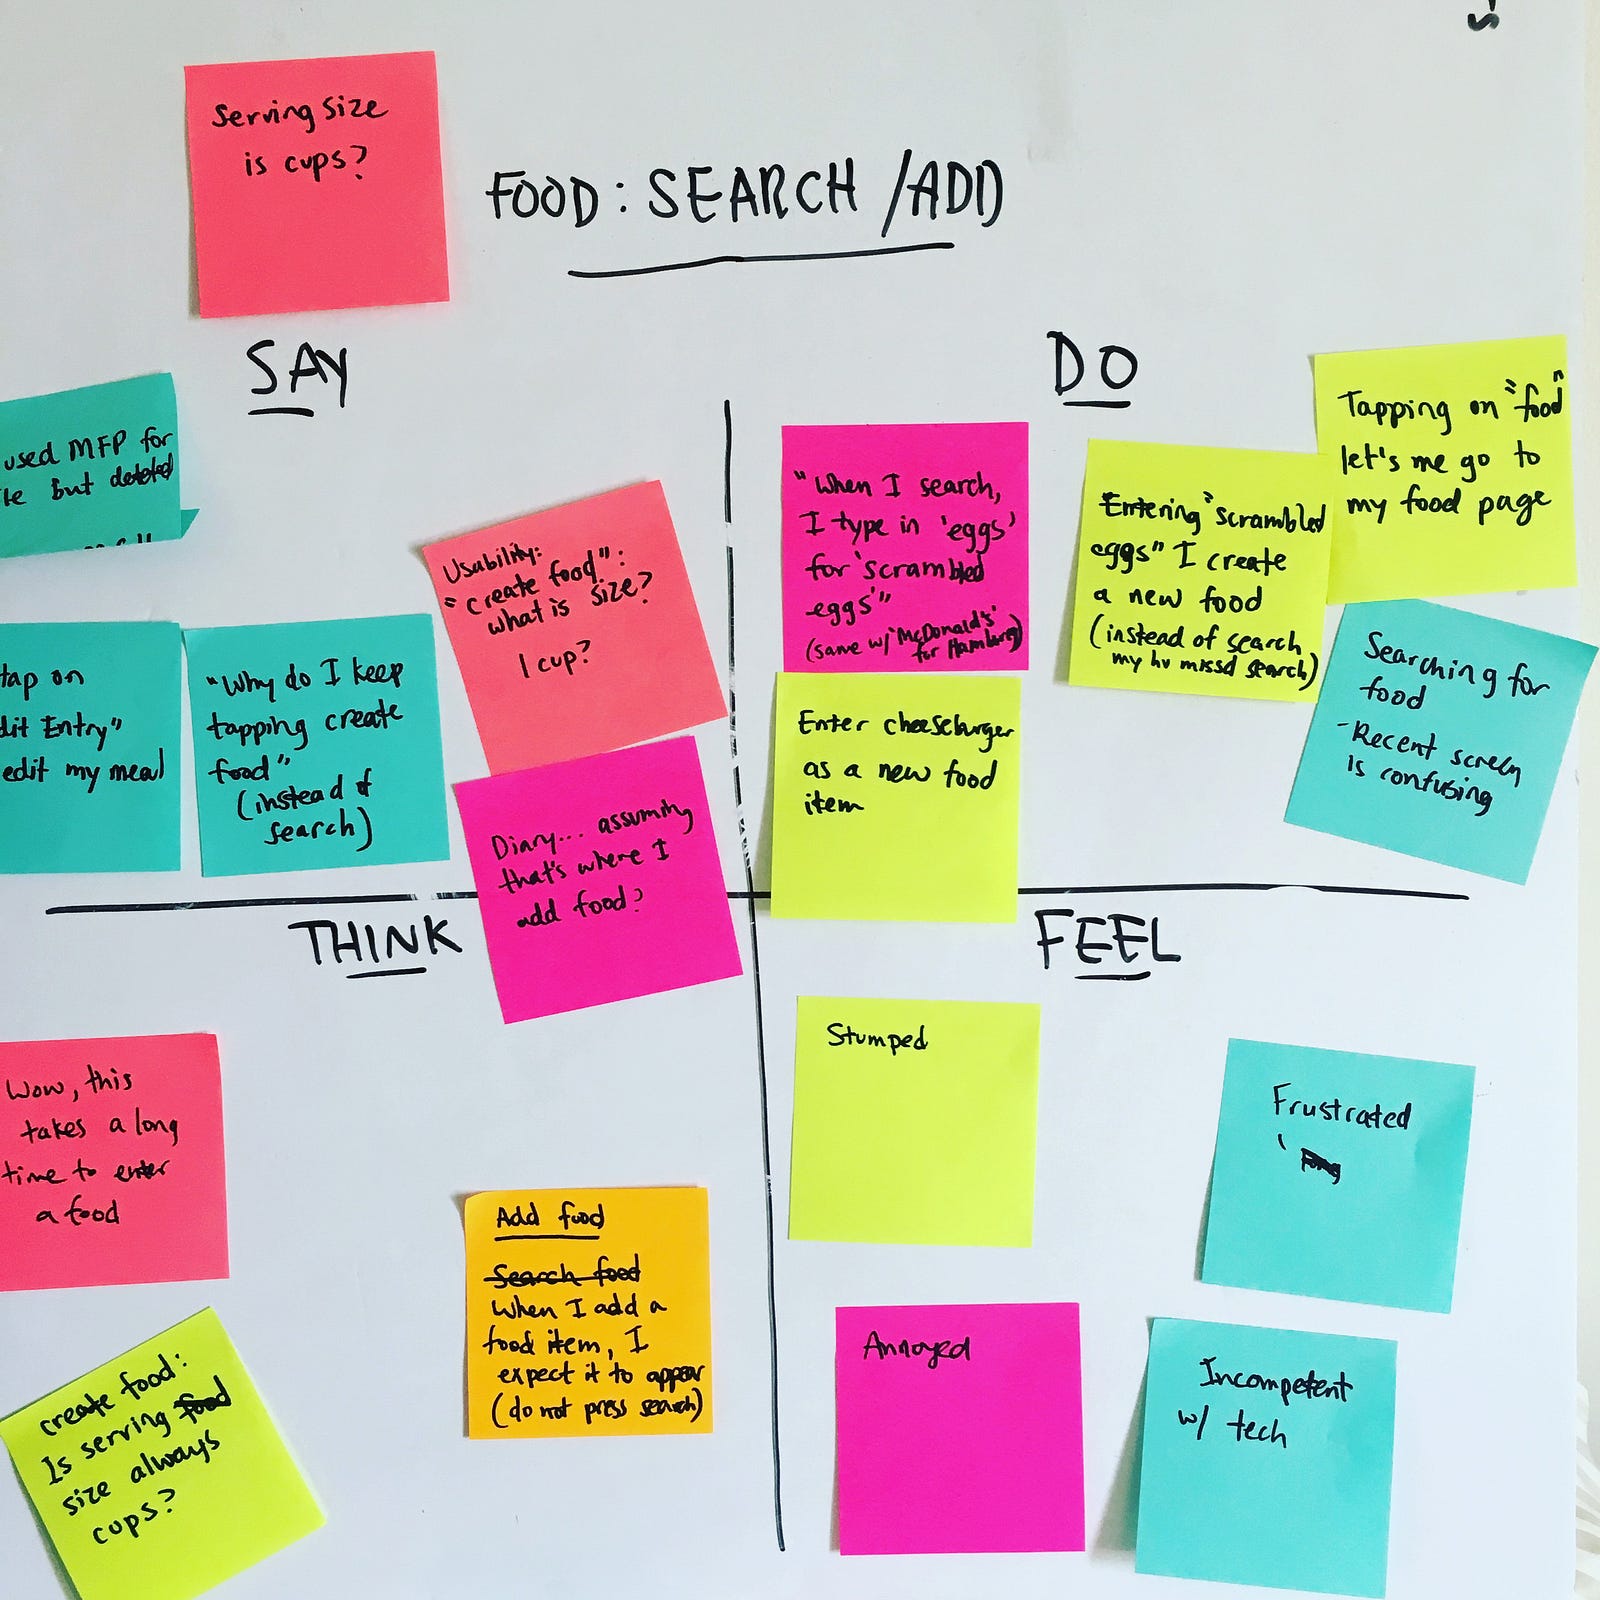 Serving Size
is cups?
FOOD: SEARCH /ADD
SAY
used MFP for
but deleted
tap on
dit Entry"
edit my meal
"Why do I keep
tapping create
food"
(instead of
search)
Usability:
"create food":
what is size?
1 cup?
Diary... assuming
that's where I
add food?
DO
"When I search,
I type in 'eggs'
for 'scrambled
eggs'"
(same w/ 'McDonald's'
for Hamburg)
Entering "scrambled
eggs" I create
a new food
(instead of search
my hv missd search)
Tapping on "food"
let's me go to
my food page
Enter cheeseburger
as a new food
item
Searching for
food
- Recent screen
is confusing
THINK
Wow, this
takes a long
time to enter
a food
create food:
Is serving food
size always
cups?
Add food
Search food
When I add a
food item, I
expect it to appear
(do not press search)
FEEL
Stumped
Frustrated
Annoyed
Incompetent
w/ tech